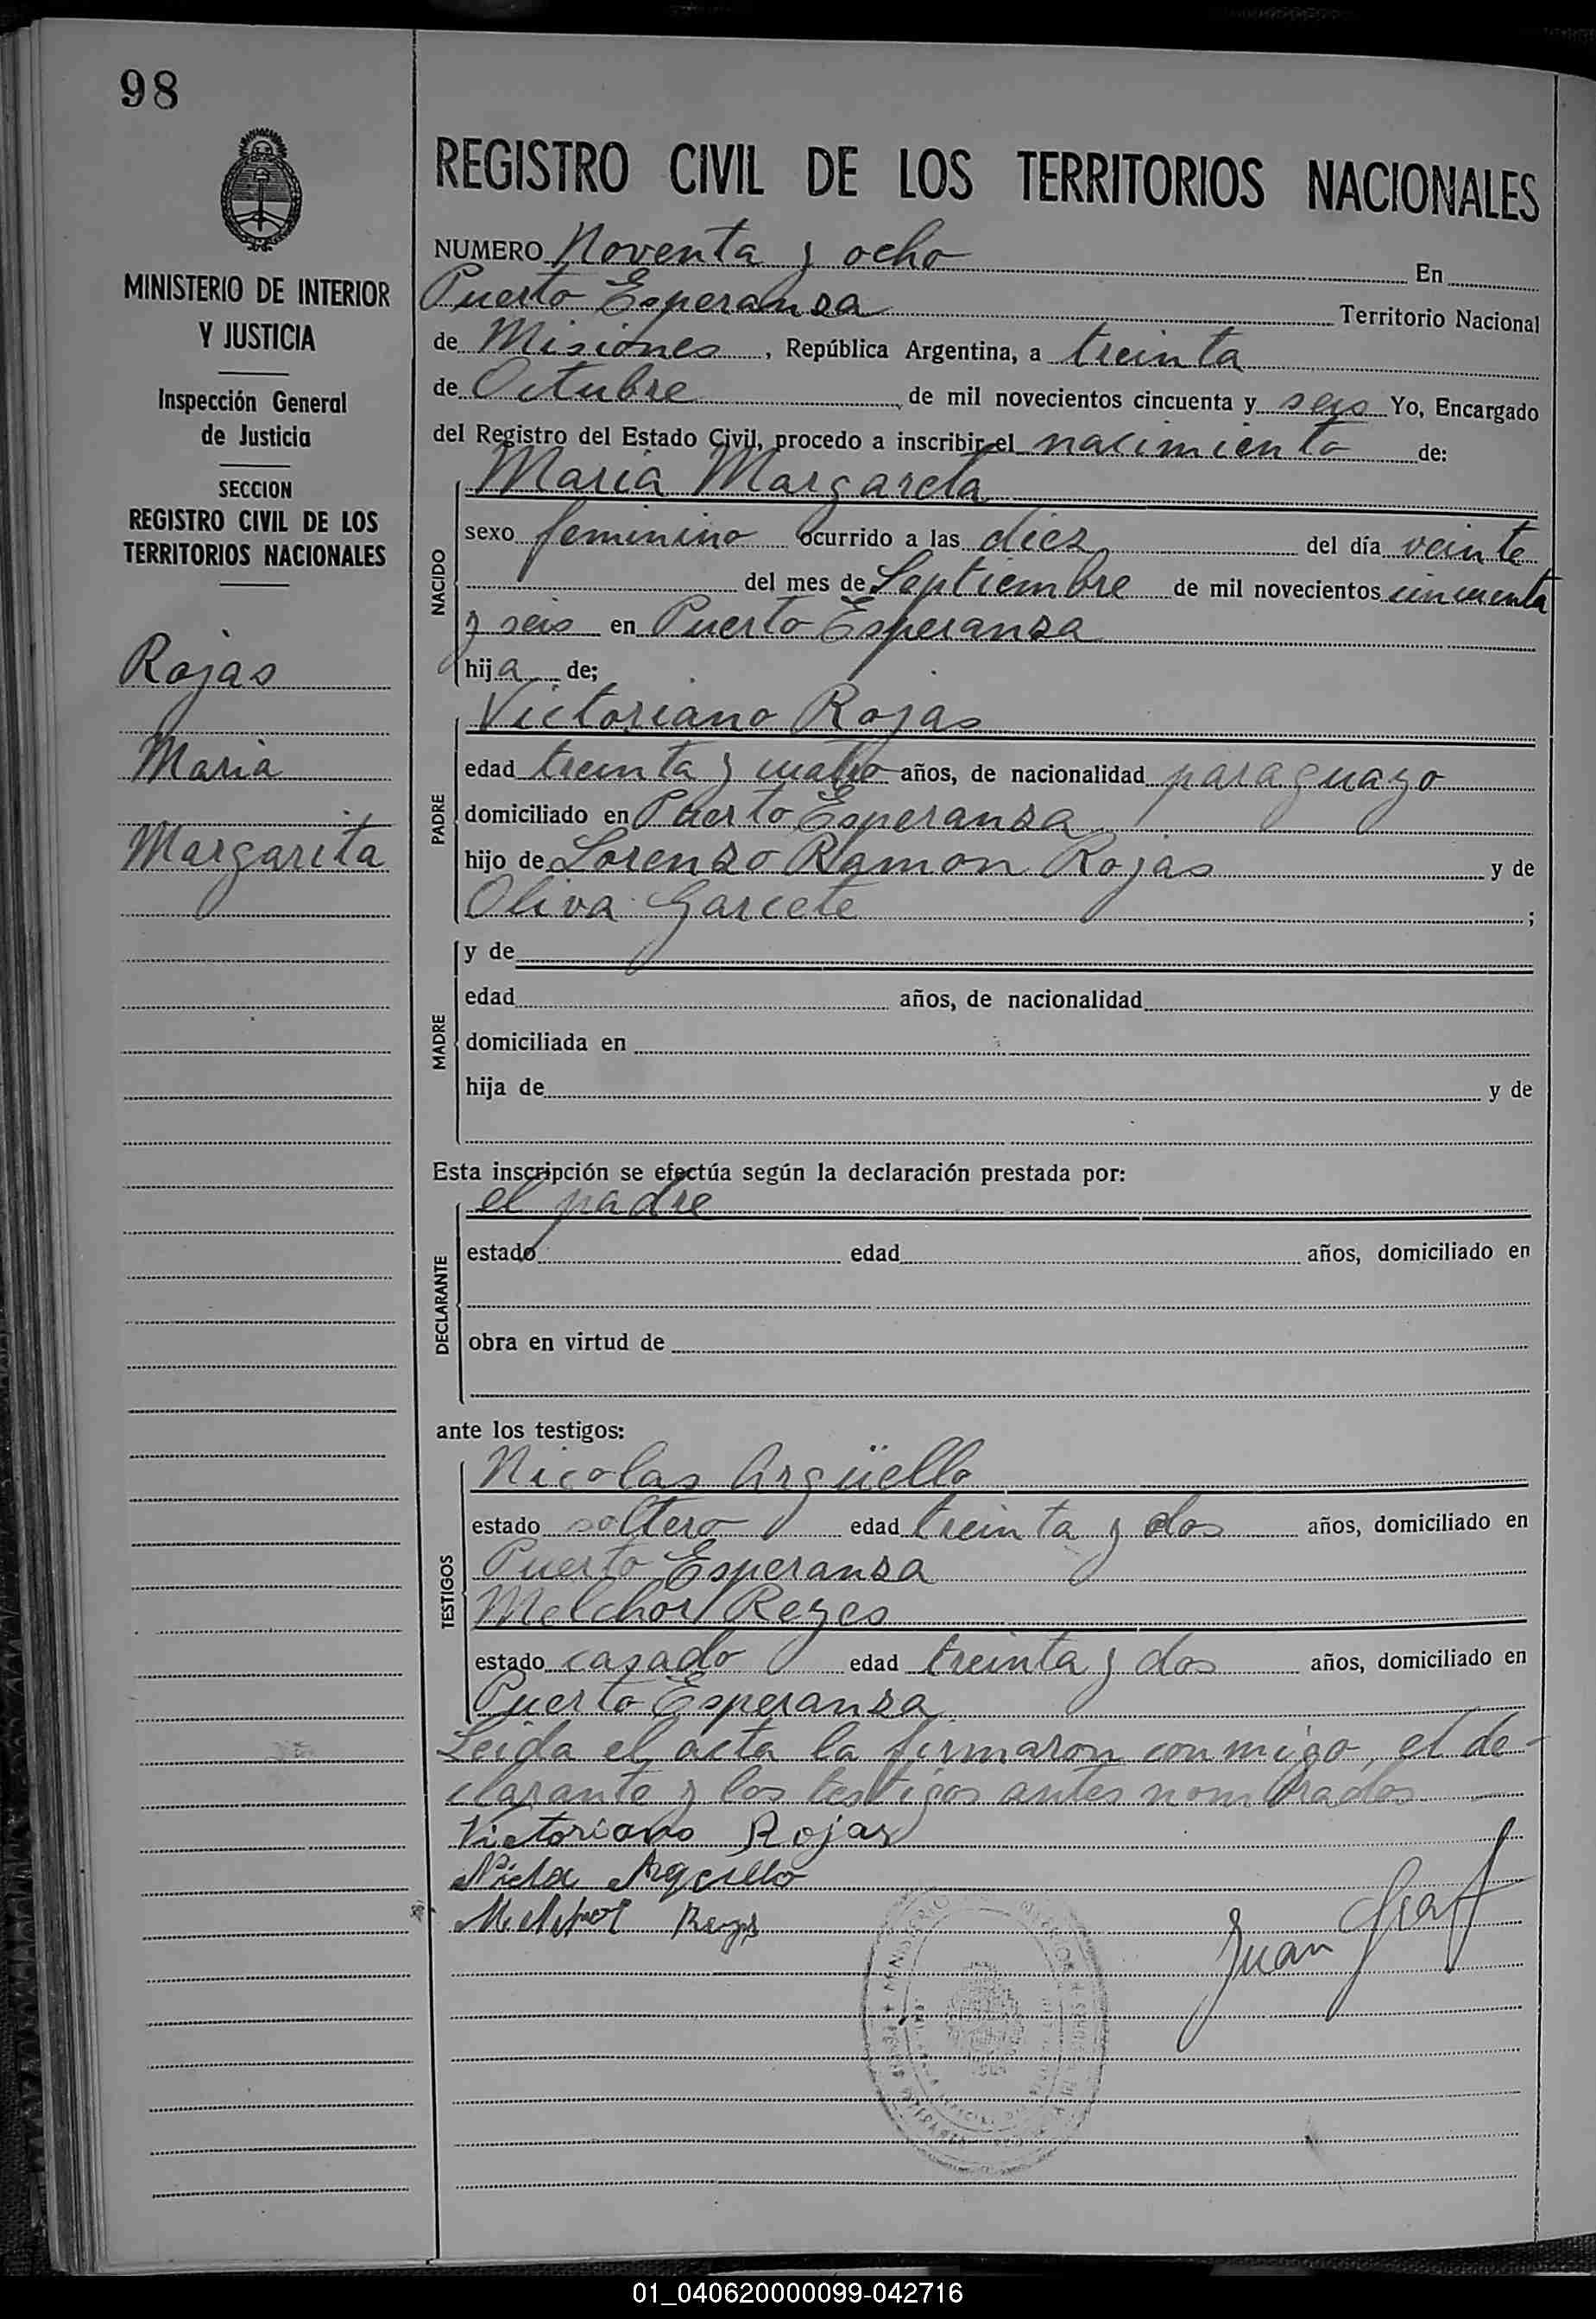 98
MINISTERIO DE INTERIOR
Y JUSTICIA
Inspección General
de Justicia
SECCION
REGISTRO CIVIL DE LOS
TERRITORIOS NACIONALES
Rojas
Maria
Margarita
REGISTRO CIVIL DE LOS TERRITORIOS NACIONALES
NUMERO Noventa y ocho En
Puerto Esperanza Territorio Nacional
de Misiones, República Argentina, a treinta
de Octubre de mil novecientos cincuenta y seis Yo, Encargado
del Registro del Estado Civil, procedo a inscribir el nacimiento de:
Maria Margareta
NACIDO
sexo feminino ocurrido a las diez del día veinte
del mes de Septiembre de mil novecientos cincuenta
y seis en Puerto Esperanza
hija de;
PADRE
Victoriano Rojas
edad treinta y cuatro años, de nacionalidad paraguayo
domiciliado en Puerto Esperanza
hijo de Lorenzo Ramon Rojas y de
Oliva Garcete ;
MADRE
y de
edad años, de nacionalidad
domiciliada en
hija de y de
Esta inscripción se efectúa según la declaración prestada por:
el padre
DECLARANTE
estado edad años, domiciliado en
obra en virtud de
ante los testigos:
TESTIGOS
Nicolas Argüello
estado soltero edad treinta y dos años, domiciliado en
Puerto Esperanza
Melchor Reyes
estado casado edad treinta y dos años, domiciliado en
Puerto Esperanza
Leida el acta la firmaron conmigo, el de-
clarante y los testigos antes nombrados
Victoriano Rojas
Juan Graf
01_040620000099-042716